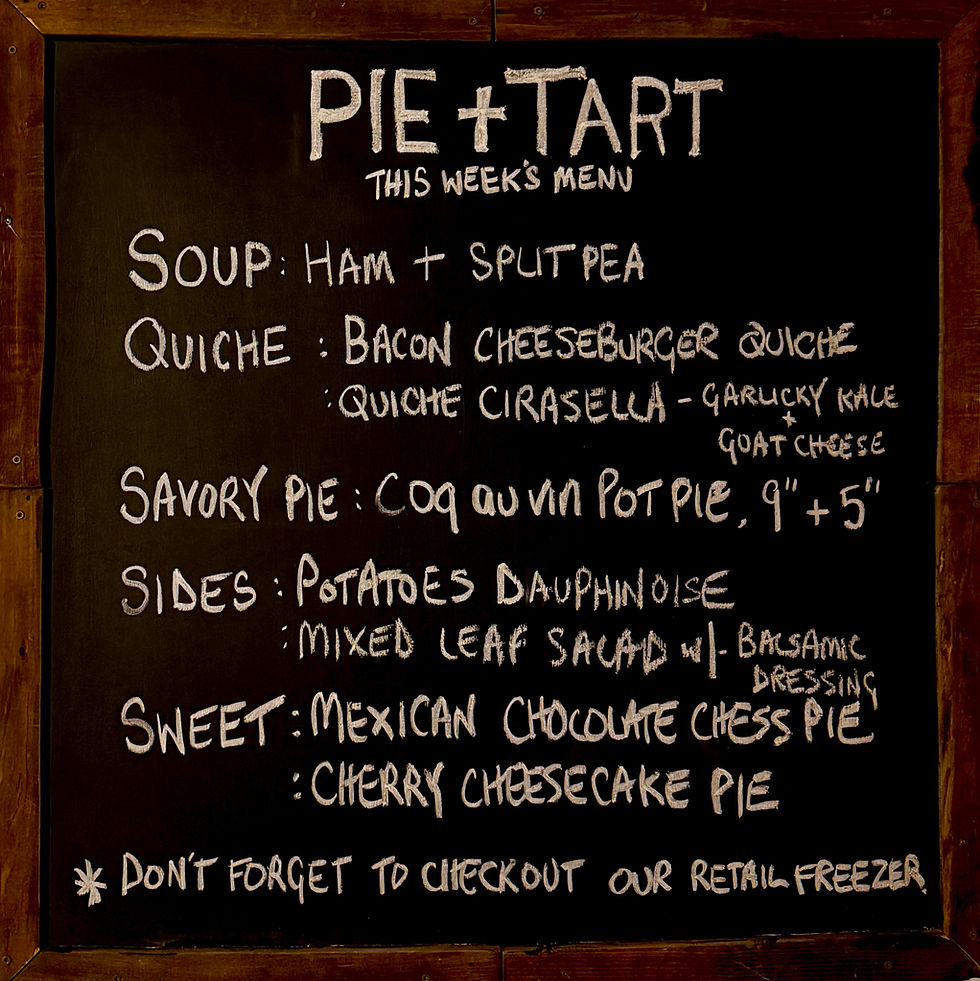 PIE + TART
THIS WEEK'S MENU
SOUP: HAM + SPLIT PEA
QUICHE : BACON CHEESEBURGER QUICHE
: QUICHE CIRASELLA - GARLICKY KALE
+
GOAT CHEESE
SAVORY PIE : COQ au vin POT PIE, 9" + 5"
SIDES : POTATOES DAUPHINOISE
: MIXED LEAF SALAD w/- BALSAMIC
DRESSING
SWEET : MEXICAN CHOCOLATE CHESS PIE
: CHERRY CHEESECAKE PIE
* DON'T FORGET TO CHECKOUT OUR RETAIL FREEZER